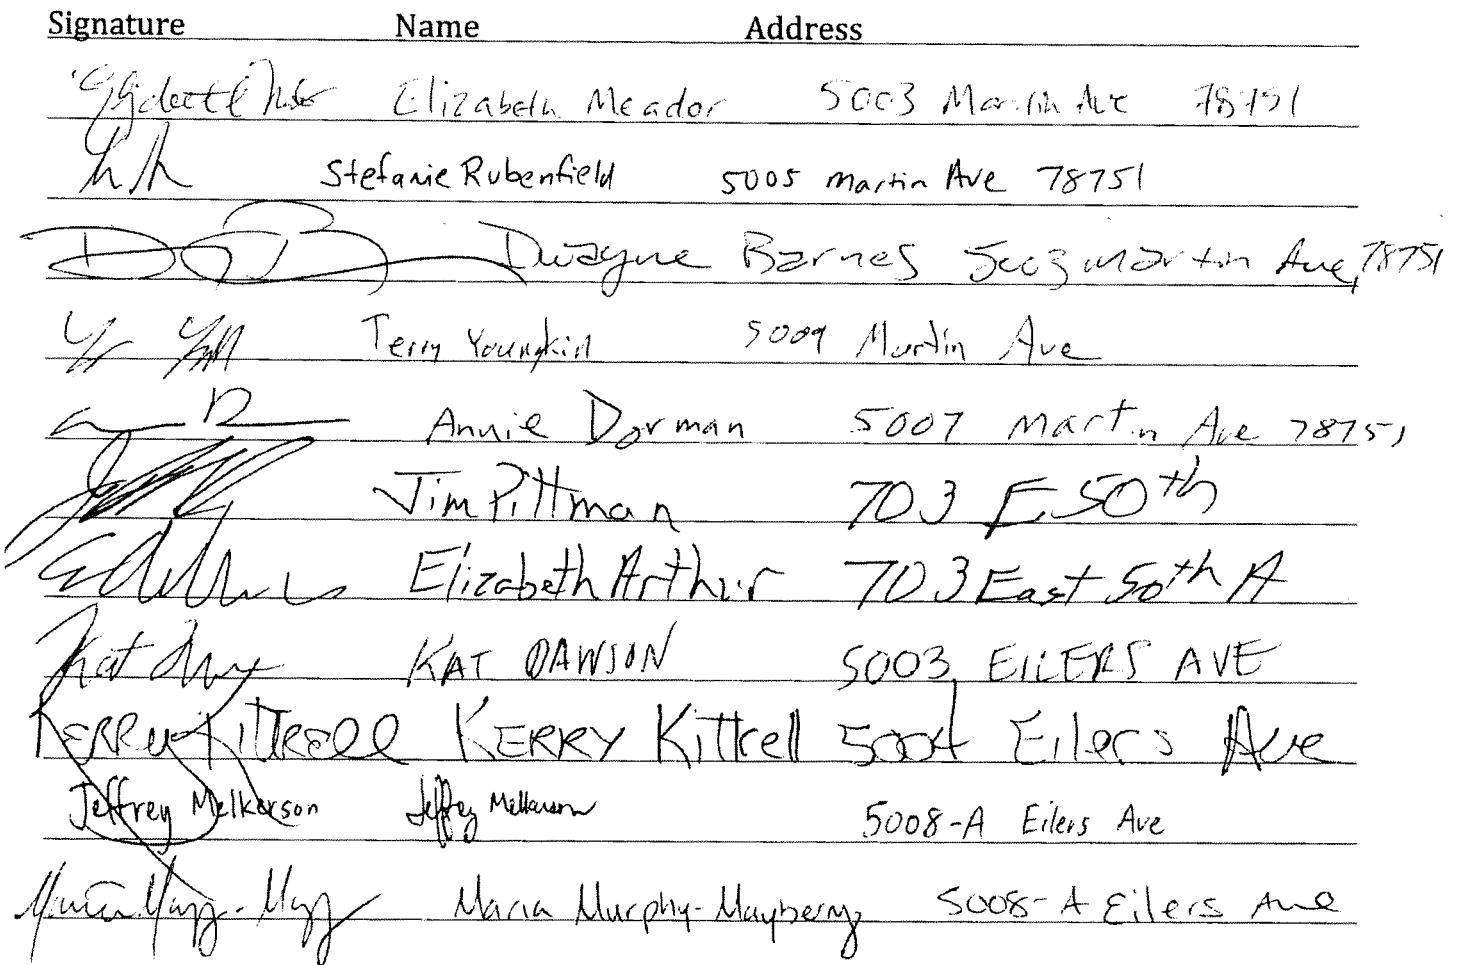 Signature Name Address
Elizabeth Meador 5003 Martin Ave 78751
Stefanie Rubenfield 5005 Martin Ave 78751
Dwayne Barnes 5003 Martin Ave, 78751
Terry Youngkin 5009 Martin Ave
Annie Dorman 5007 Martin Ave 78751
Jim Pittman 703 E 50th
Elizabeth Arthur 703 East 50th A
Kat KAT DAWSON 5003 EILERS AVE
KERRY Kittrell KERRY Kittrell 5004 Eilers Ave
Jeffrey Melkerson Jeffrey Melkerson 5008-A Eilers Ave
Maria Murphy-Mayberry 5008-A Eilers Ave